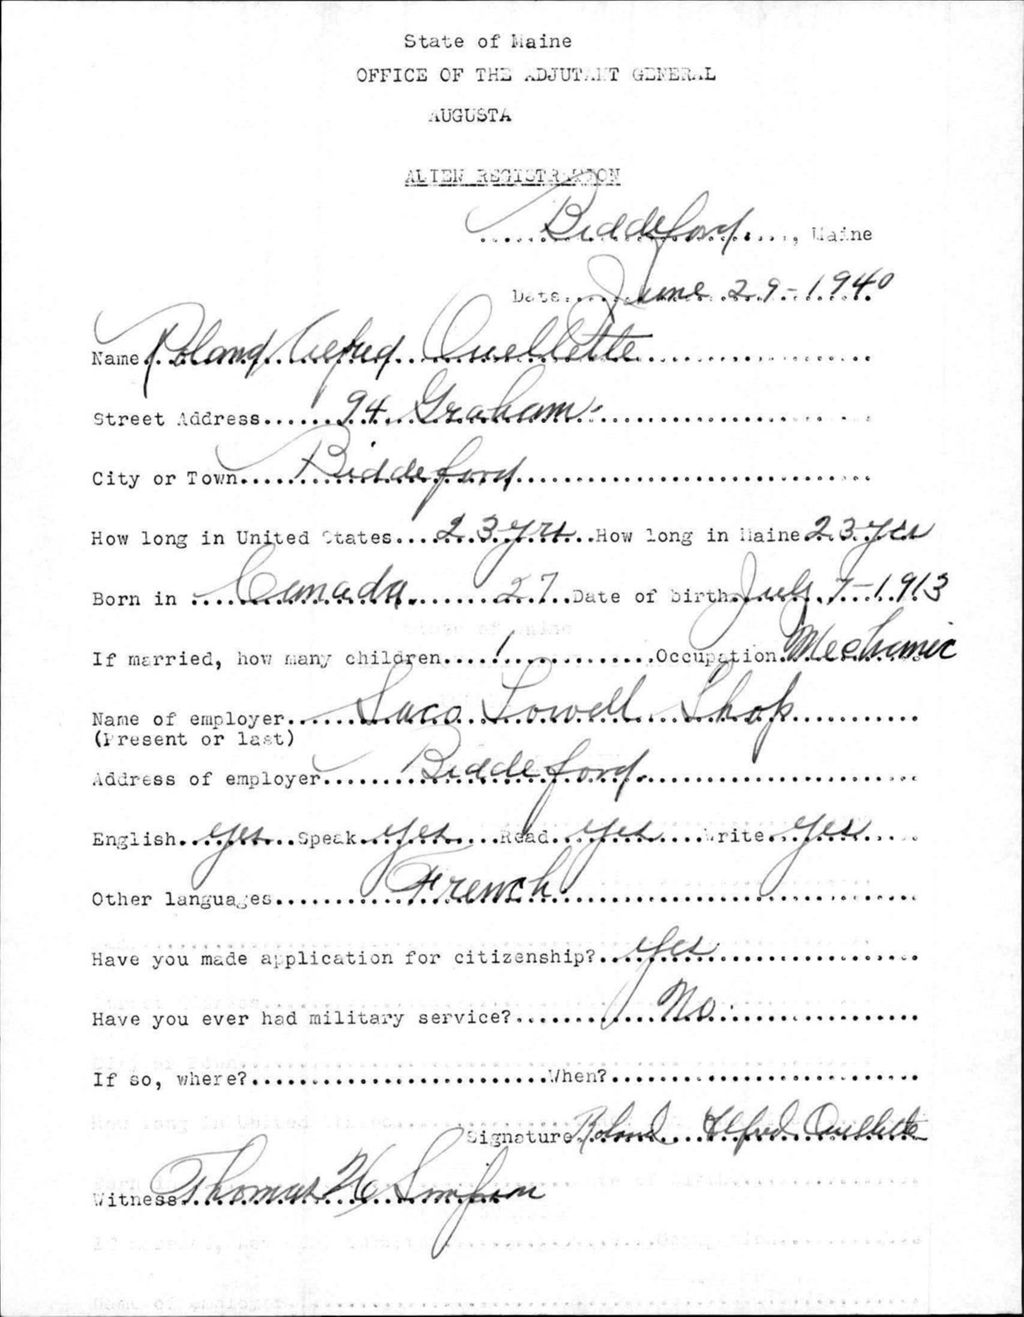 State of Maine
OFFICE OF THE ADJUTANT GENERAL
AUGUSTA
ALIEN REGISTRATION
Biddeford, Maine
Date June 29-1940
Name Roland Alfred Ouellette
Street Address 94 Graham
City or Town Biddeford
How long in United States 23 yrs How long in Maine 23 yrs
Born in Canada 27 Date of birth July 7-1913
If married, how many children 1 Occupation Mechanic
Name of employer Saco Lowell Shop
(Present or last)
Address of employer Biddeford
English yes Speak yes Read yes Write yes
Other languages French
Have you made application for citizenship? Yes
Have you ever had military service? No
If so, where? When?
Signature Roland Alfred Ouellette
Witness Thomas H Simpson